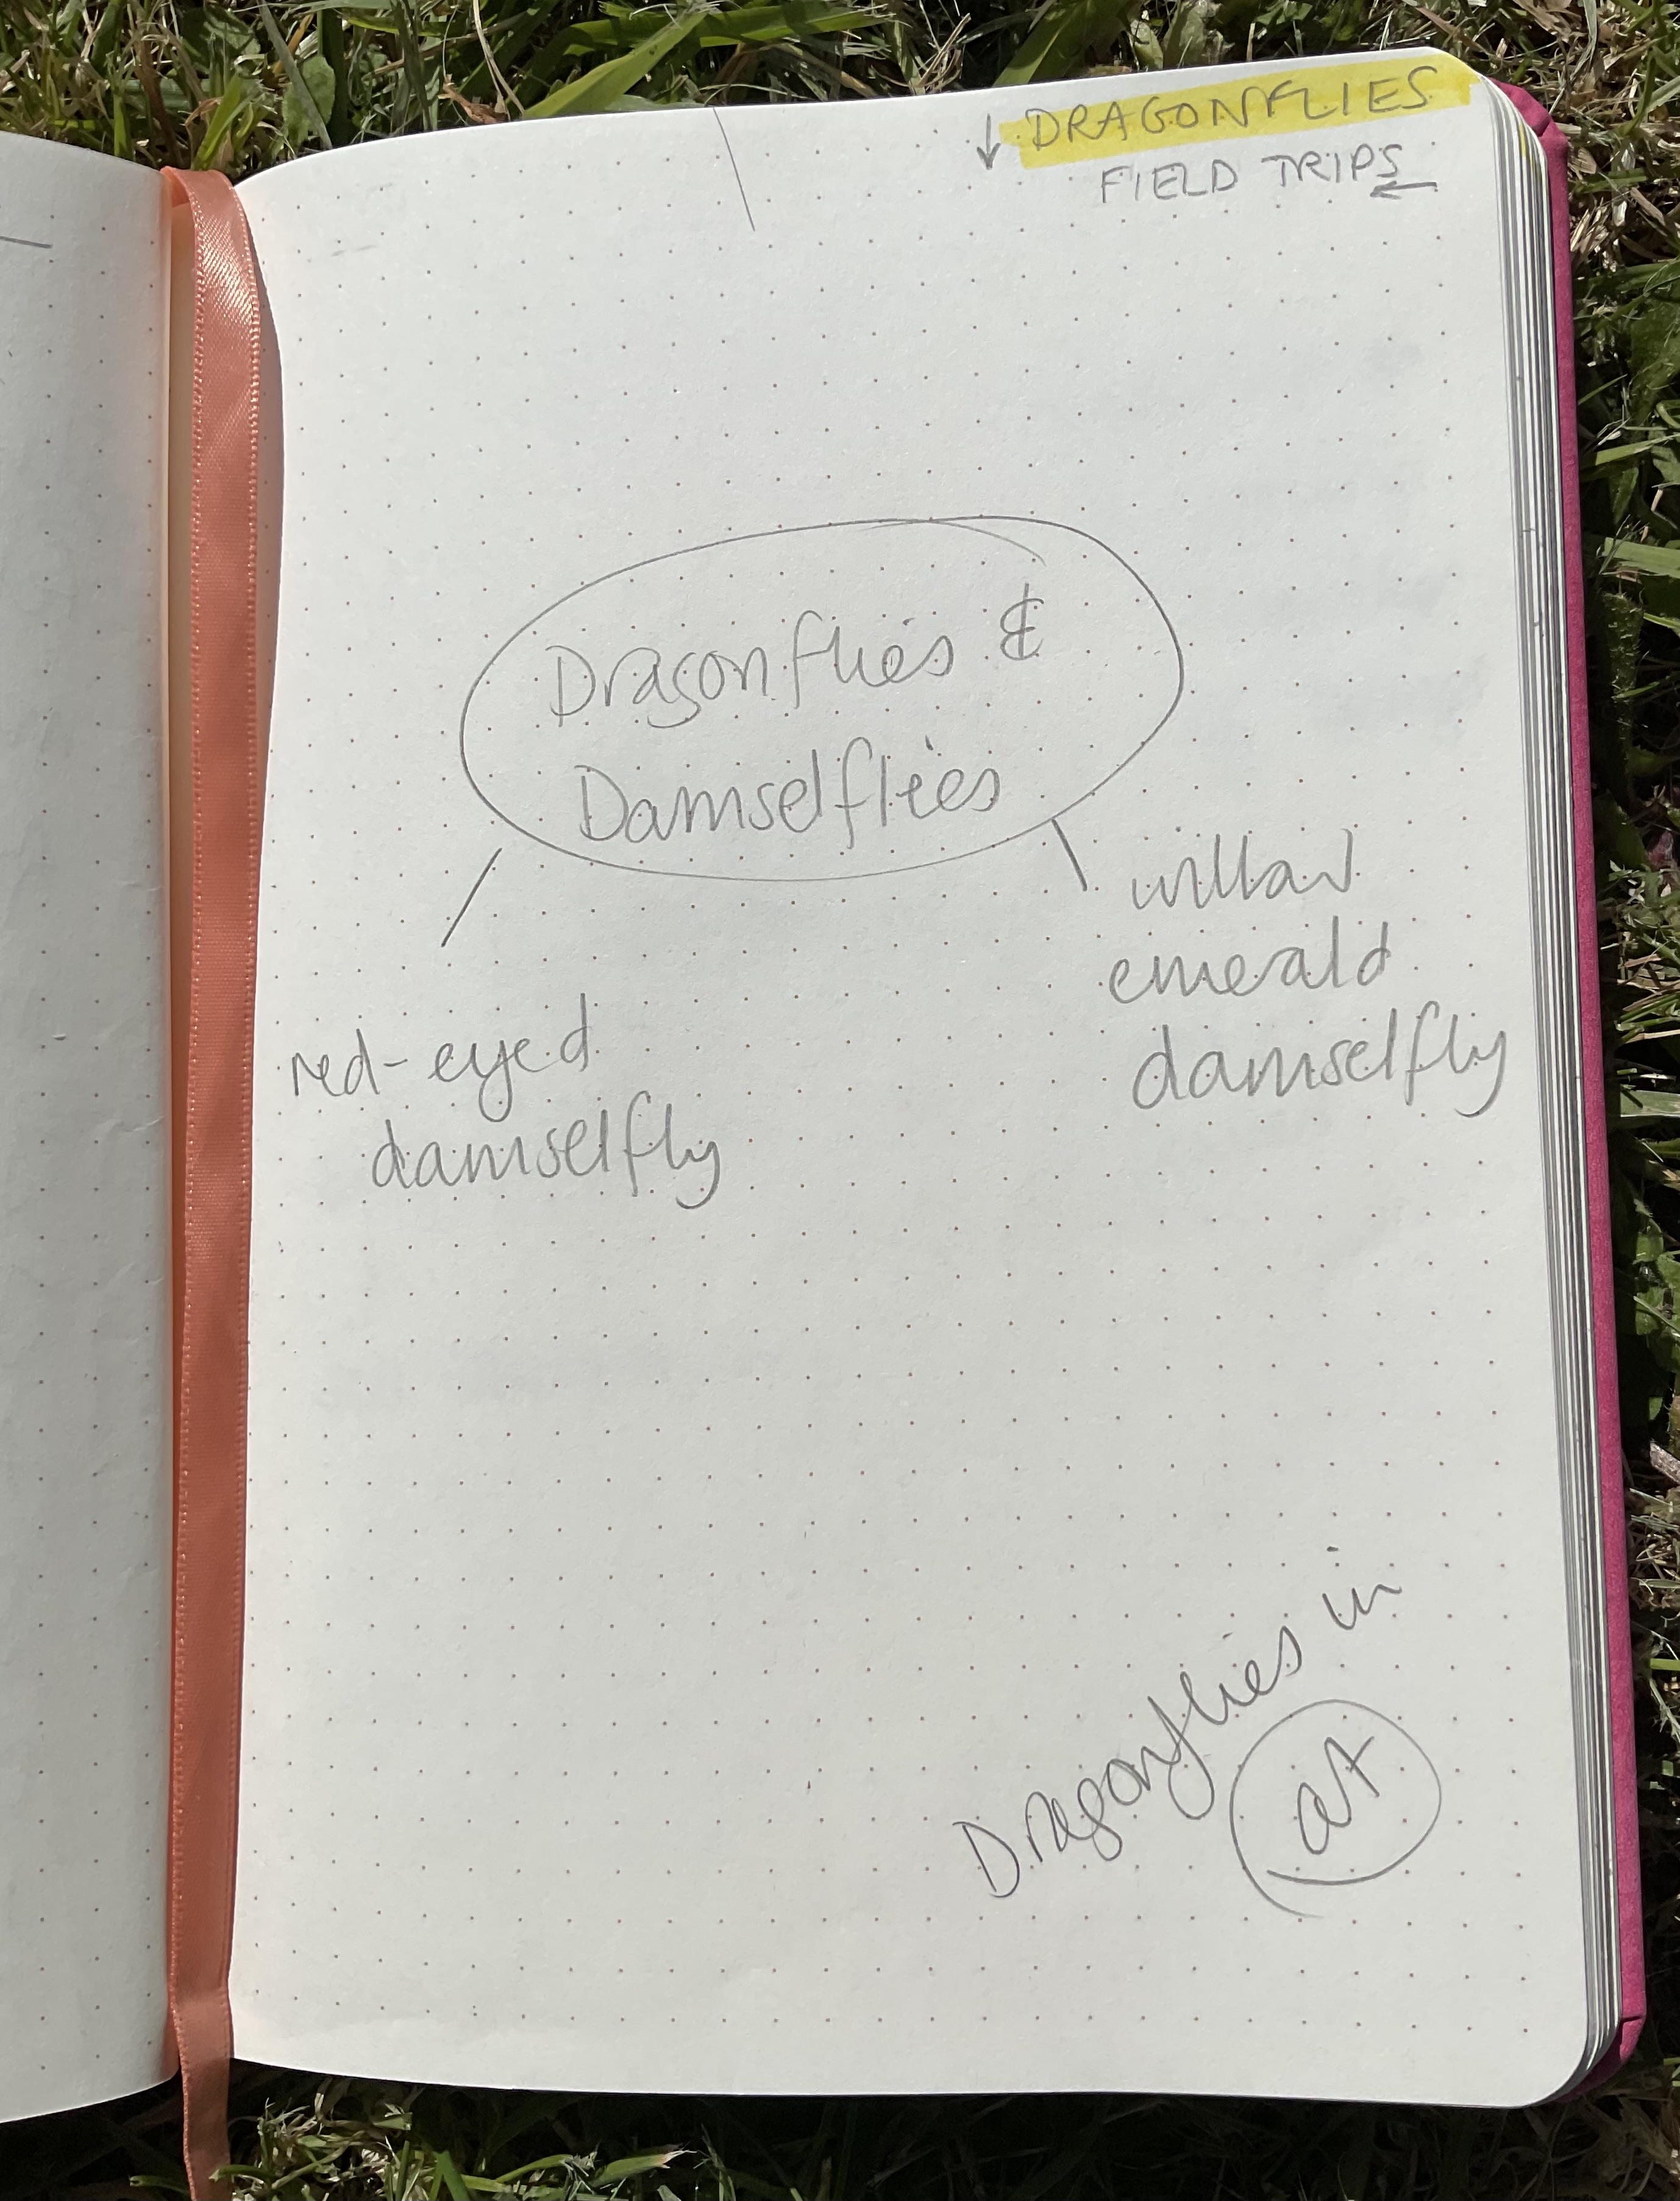 DRAGONFLIES
FIELD TRIPS
Dragonflies &
Damselflies
willow
emerald
damselfly
red-eyed
damselfly
Dragonflies in
art